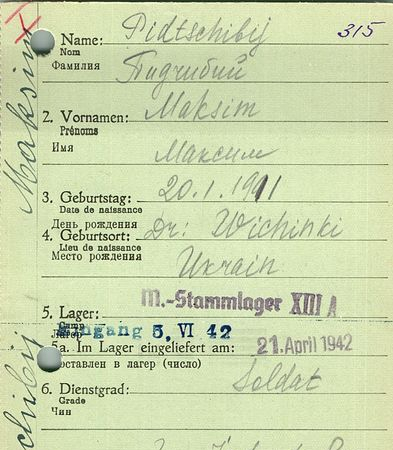 Maksim
1. Name: Pidtschibij 315
Nom
Фамилия Пидчибий
2. Vornamen: Maksim
Prénoms
Имя Максим
3. Geburtstag: 20.1.1911
Date de naissance
День рождения
4. Geburtsort: Dr: Wichinki
Lieu de naissance
Место рождения Ukrain
5. Lager: M.-Stammlager XIII A
Camp
Лагерь
Eingang 5. VI 42
5a. Im Lager eingeliefert am: 21. April 1942
Доставлен в лагер (число)
6. Dienstgrad: Soldat
Grade
Чин